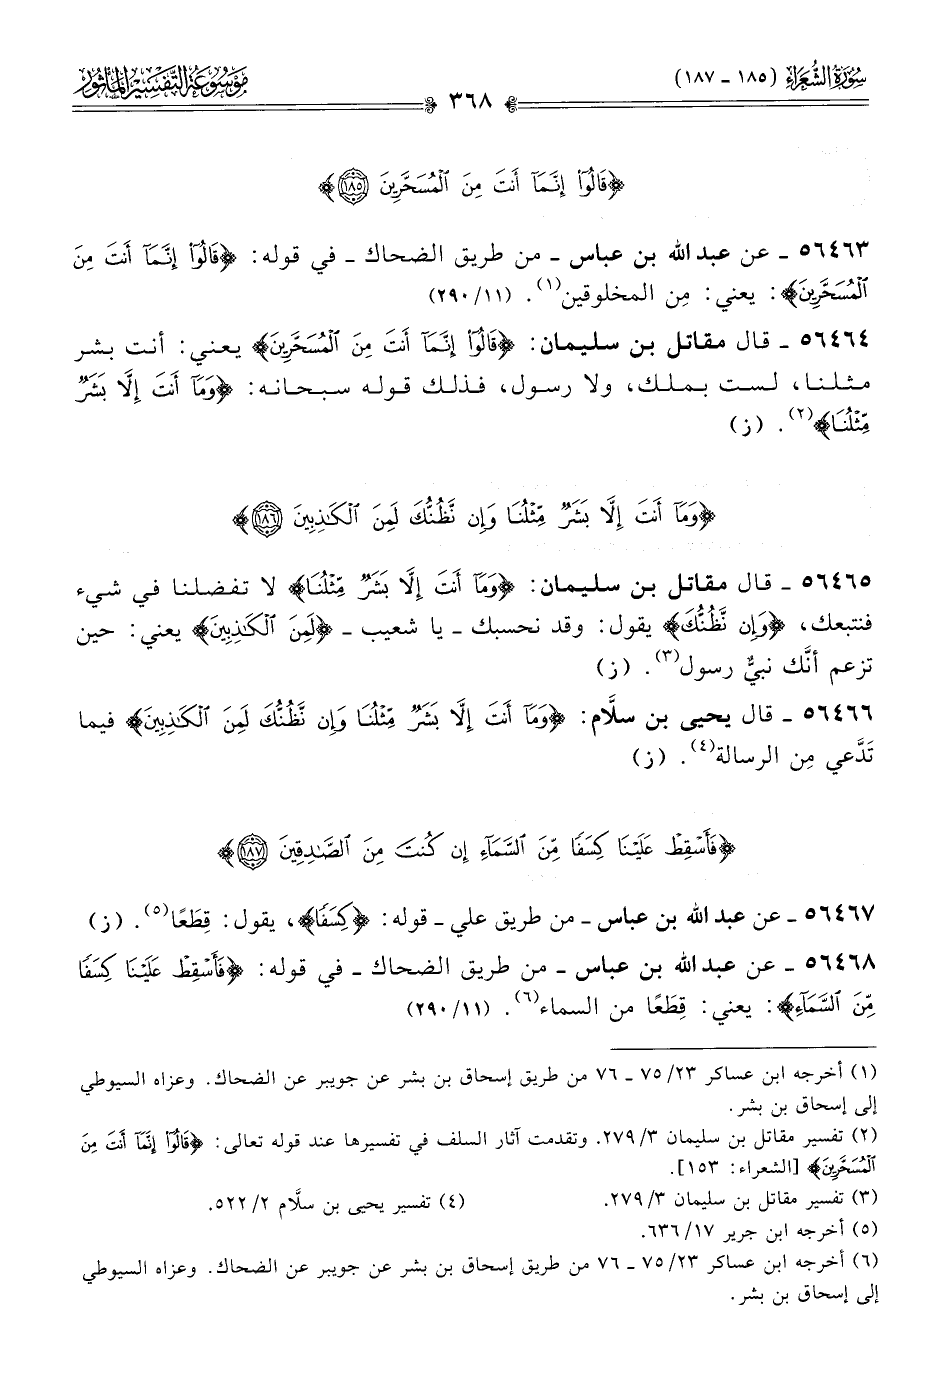 سُورَةُ الشُّعَرَاءِ (١٨٥ - ١٨٧)
٣٦٨
مَوْسُوعَةُ التَّفْسِيرِ المَأْثُورِ
﴿قَالُوٓاْ إِنَّمَآ أَنتَ مِنَ ٱلْمُسَحَّرِينَ ١٨٥﴾
٥٦٤٦٣ - عن عبد الله بن عباس - من طريق الضحاك - في قوله: ﴿قَالُوٓاْ إِنَّمَآ أَنتَ مِنَ
ٱلْمُسَحَّرِينَ﴾: يعني: مِن المخلوقين(١). (٢٩٠/١١)
٥٦٤٦٤ - قال مقاتل بن سليمان: ﴿قَالُوٓاْ إِنَّمَآ أَنتَ مِنَ ٱلْمُسَحَّرِينَ﴾ يعني: أنت بشر
مثلنا، لست بملك، ولا رسول، فذلك قوله سبحانه: ﴿وَمَآ أَنتَ إِلَّا بَشَرٌ
مِّثْلُنَا﴾(٢). (ز)
﴿وَمَآ أَنتَ إِلَّا بَشَرٌ مِّثْلُنَا وَإِن نَّظُنُّكَ لَمِنَ ٱلْكَٰذِبِينَ ١٨٦﴾
٥٦٤٦٥ - قال مقاتل بن سليمان: ﴿وَمَآ أَنتَ إِلَّا بَشَرٌ مِّثْلُنَا﴾ لا تفضلنا في شيء
فنتبعك، ﴿وَإِن نَّظُنُّكَ﴾ يقول: وقد نحسبك - يا شعيب - ﴿لَمِنَ ٱلْكَٰذِبِينَ﴾ يعني: حين
تزعم أنَّك نبيٌّ رسول(٣). (ز)
٥٦٤٦٦ - قال يحيى بن سلَّام: ﴿وَمَآ أَنتَ إِلَّا بَشَرٌ مِّثْلُنَا وَإِن نَّظُنُّكَ لَمِنَ ٱلْكَٰذِبِينَ﴾ فيما
تَدَّعي مِن الرسالة(٤). (ز)
﴿فَأَسْقِطْ عَلَيْنَا كِسَفًا مِّنَ ٱلسَّمَآءِ إِن كُنتَ مِنَ ٱلصَّٰدِقِينَ ١٨٧﴾
٥٦٤٦٧ - عن عبد الله بن عباس - من طريق علي - قوله: ﴿كِسَفًا﴾، يقول: قِطَعًا(٥). (ز)
٥٦٤٦٨ - عن عبد الله بن عباس - من طريق الضحاك - في قوله: ﴿فَأَسْقِطْ عَلَيْنَا كِسَفًا
مِّنَ ٱلسَّمَآءِ﴾: يعني: قِطَعًا من السماء(٦). (٢٩٠/١١)
(١) أخرجه ابن عساكر ٢٣/ ٧٥ - ٧٦ من طريق إسحاق بن بشر عن جويبر عن الضحاك. وعزاه السيوطي
إلى إسحاق بن بشر.
(٢) تفسير مقاتل بن سليمان ٣/ ٢٧٩. وتقدمت آثار السلف في تفسيرها عند قوله تعالى: ﴿قَالُوٓاْ إِنَّمَآ أَنتَ مِنَ
ٱلْمُسَحَّرِينَ﴾ [الشعراء: ١٥٣].
(٣) تفسير مقاتل بن سليمان ٣/ ٢٧٩. (٤) تفسير يحيى بن سلَّام ٢/ ٥٢٢.
(٥) أخرجه ابن جرير ١٧/ ٦٣٦.
(٦) أخرجه ابن عساكر ٢٣/ ٧٥ - ٧٦ من طريق إسحاق بن بشر عن جويبر عن الضحاك. وعزاه السيوطي
إلى إسحاق بن بشر.